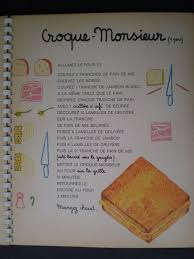 Croque-Monsieur (1 pers)
ALLUMEZ LE FOUR
COUPEZ 2 TRANCHES DE PAIN DE MIE
ENLEVEZ LES BORDS
COUPEZ 1 TRANCHE DE JAMBON BLANC
A LA MÊME TAILLE QUE LE PAIN
BEURREZ CHAQUE TRANCHE DE PAIN
DE 1 cuillère à café DE BEURRE
COUPEZ LAMELLES DE GRUYÈRE
SUR 1 TRANCHE
DE PAIN DE MIE BEURRÉE
POSEZ LAMELLES DE GRUYÈRE
PUIS LA TRANCHE DE JAMBON
PUIS LAMELLES DE GRUYÈRE
PUIS LA 2e TRANCHE DE PAIN DE MIE
(côté beurré vers le gruyère)
METTEZ LE CROQUE-MONSIEUR
AU FOUR sur la grille
MINUTES
RETOURNEZ-LE
ENCORE AU FOUR
MINUTES
Mangez chaud.